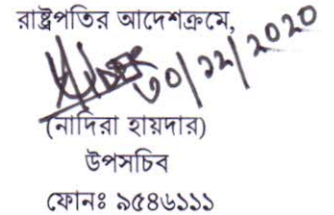 রাষ্ট্রপতির আদেশক্রমে,
৩০/১২/২০২০
(নাদিরা হায়দার)
উপসচিব
ফোনঃ ৯৫৪৬১১১